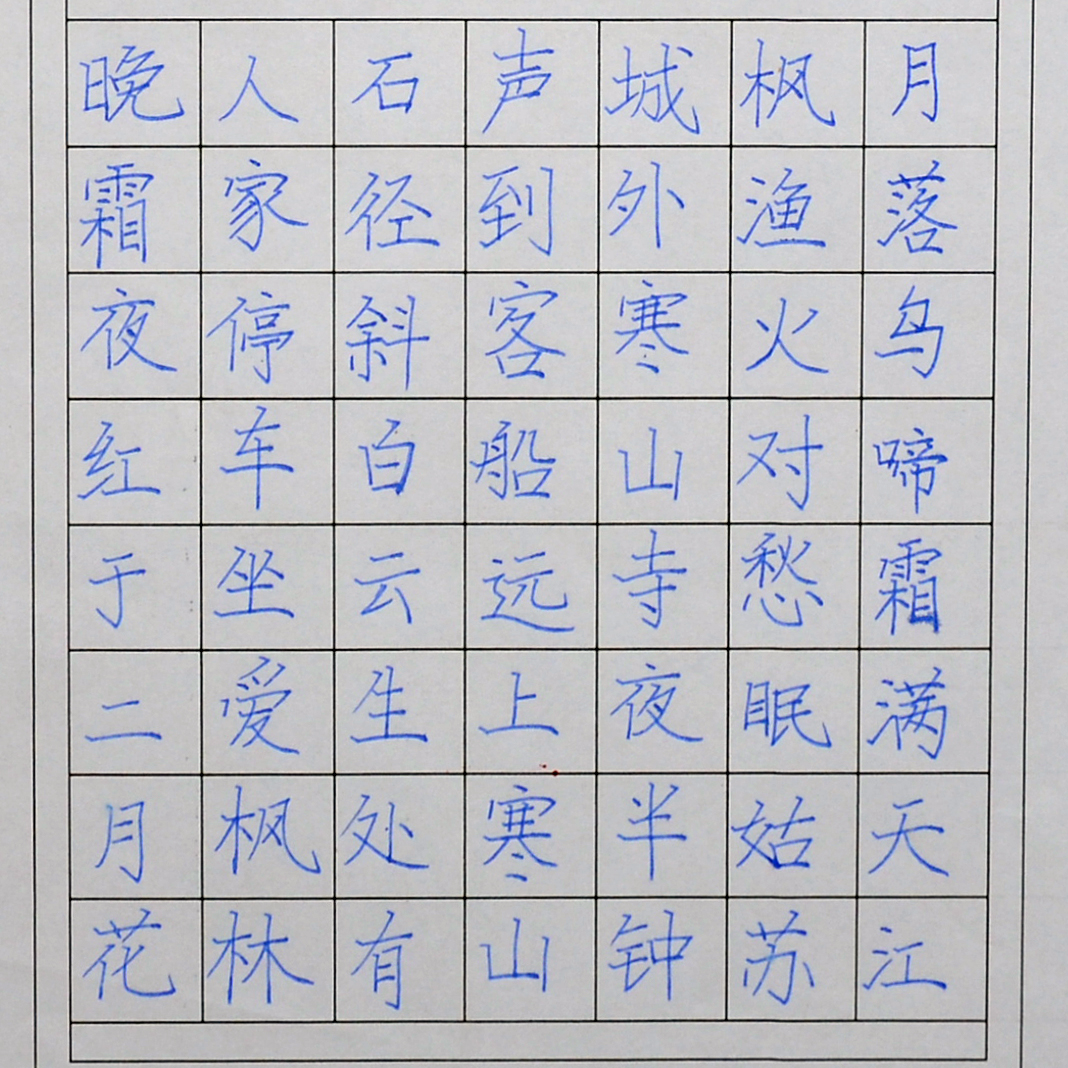 月落乌啼霜满天江
枫渔火对愁眠姑苏
城外寒山寺夜半钟
声到客船远上寒山
石径斜白云生处有
人家停车坐爱枫林
晚霜夜红于二月花